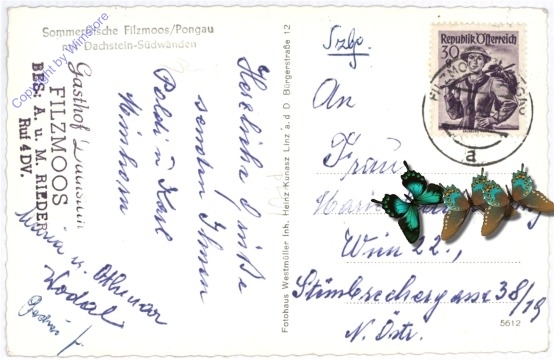 Sommerfrische Filzmoos/Pongau
Dachstein-Südwänden
Copyright by Wimstore
Gasthof
FILZMOOS
BES: A. u. M. RIEDER
Ruf 4 DV.
Herzliche Grüße
senden Ihnen
Poldi u Karl
Maria u. Othmar
Fotohaus Westmüller Inh. Heinz Kunasz Linz a.d D Bürgerstraße 12
Szbg.
An
Frau
Wien 22.,
38/19
N. Östr.
5612
Republik Österreich
30
FILZMOOS
a